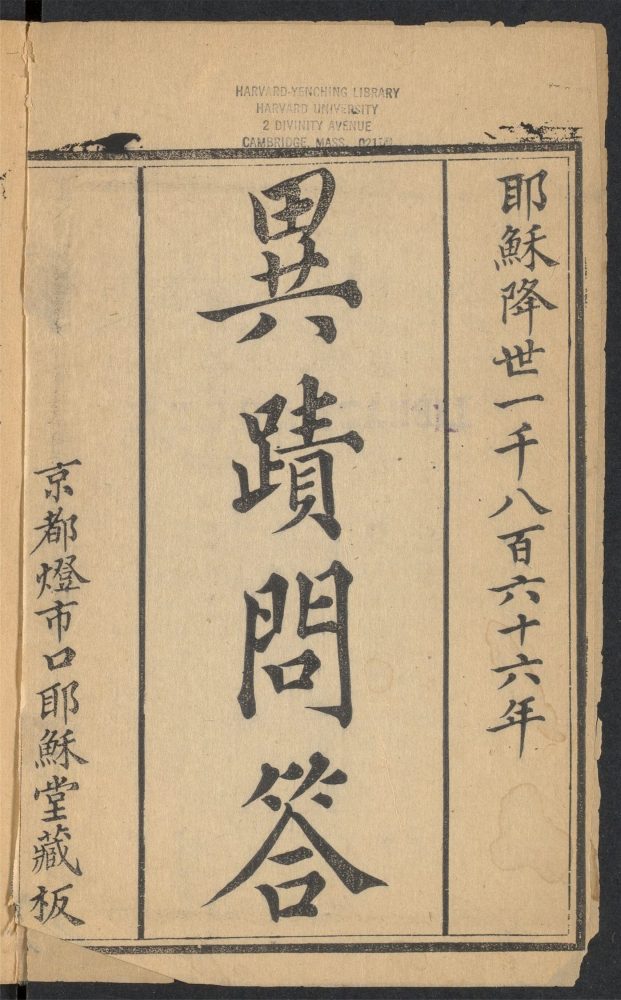 HARVARD-YENCHING LIBRARY
HARVARD UNIVERSITY
2 DIVINITY AVENUE
CAMBRIDGE, MASS. 02138
耶穌降世一千八百六十六年
異蹟問答
京都燈市口耶穌堂藏板